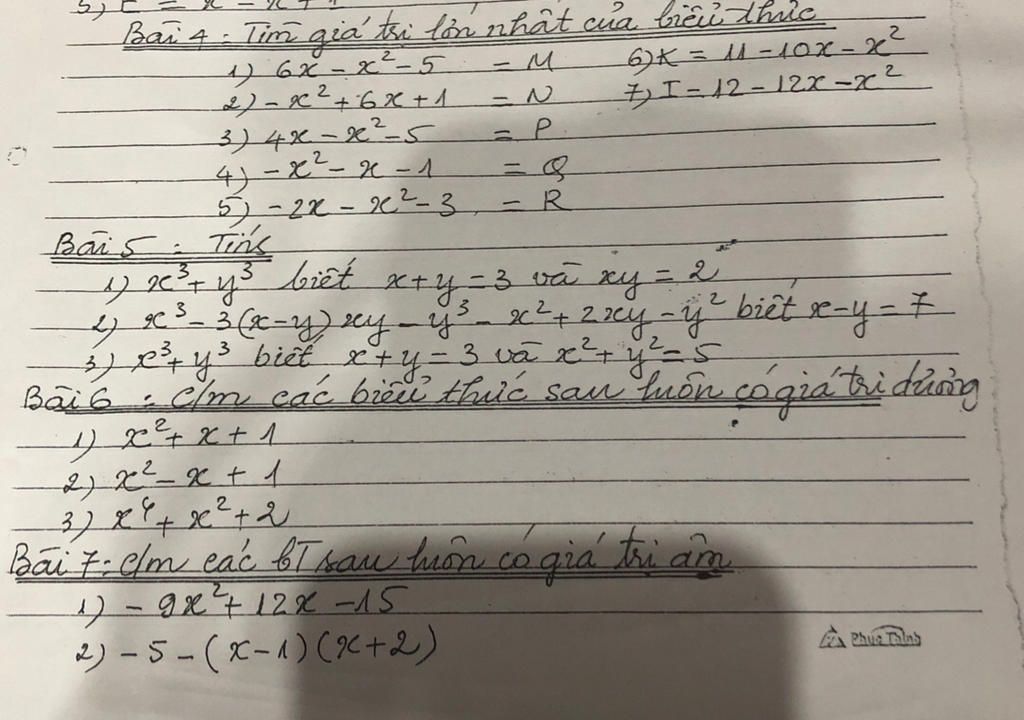 5) E = x - x + 1
Bài 4 : Tìm giá trị lớn nhất của biểu thức
1) 6x - x² - 5 = M 6) K = 11 - 10x - x²
2) - x² + 6x + 1 = N 7) I = 12 - 12x - x²
3) 4x - x² - 5 = P
4) - x² - x - 1 = Q
5) - 2x - x² - 3 = R
Bài 5 : Tính
1) x³ + y³ biết x + y = 3 và xy = 2
2) x³ - 3(x-y)xy - y³ - x² + 2xy - y² biết x - y = 7
3) x³ + y³ biết x + y = 3 và x² + y² = 5
Bài 6 : C/m các biểu thức sau luôn có giá trị dương
1) x² + x + 1
2) x² - x + 1
3) x⁴ + x² + 2
Bài 7 : C/m các bT sau luôn có giá trị âm
1) - 9x² + 12x - 15
2) - 5 - (x-1)(x+2)
Phúc Thịnh